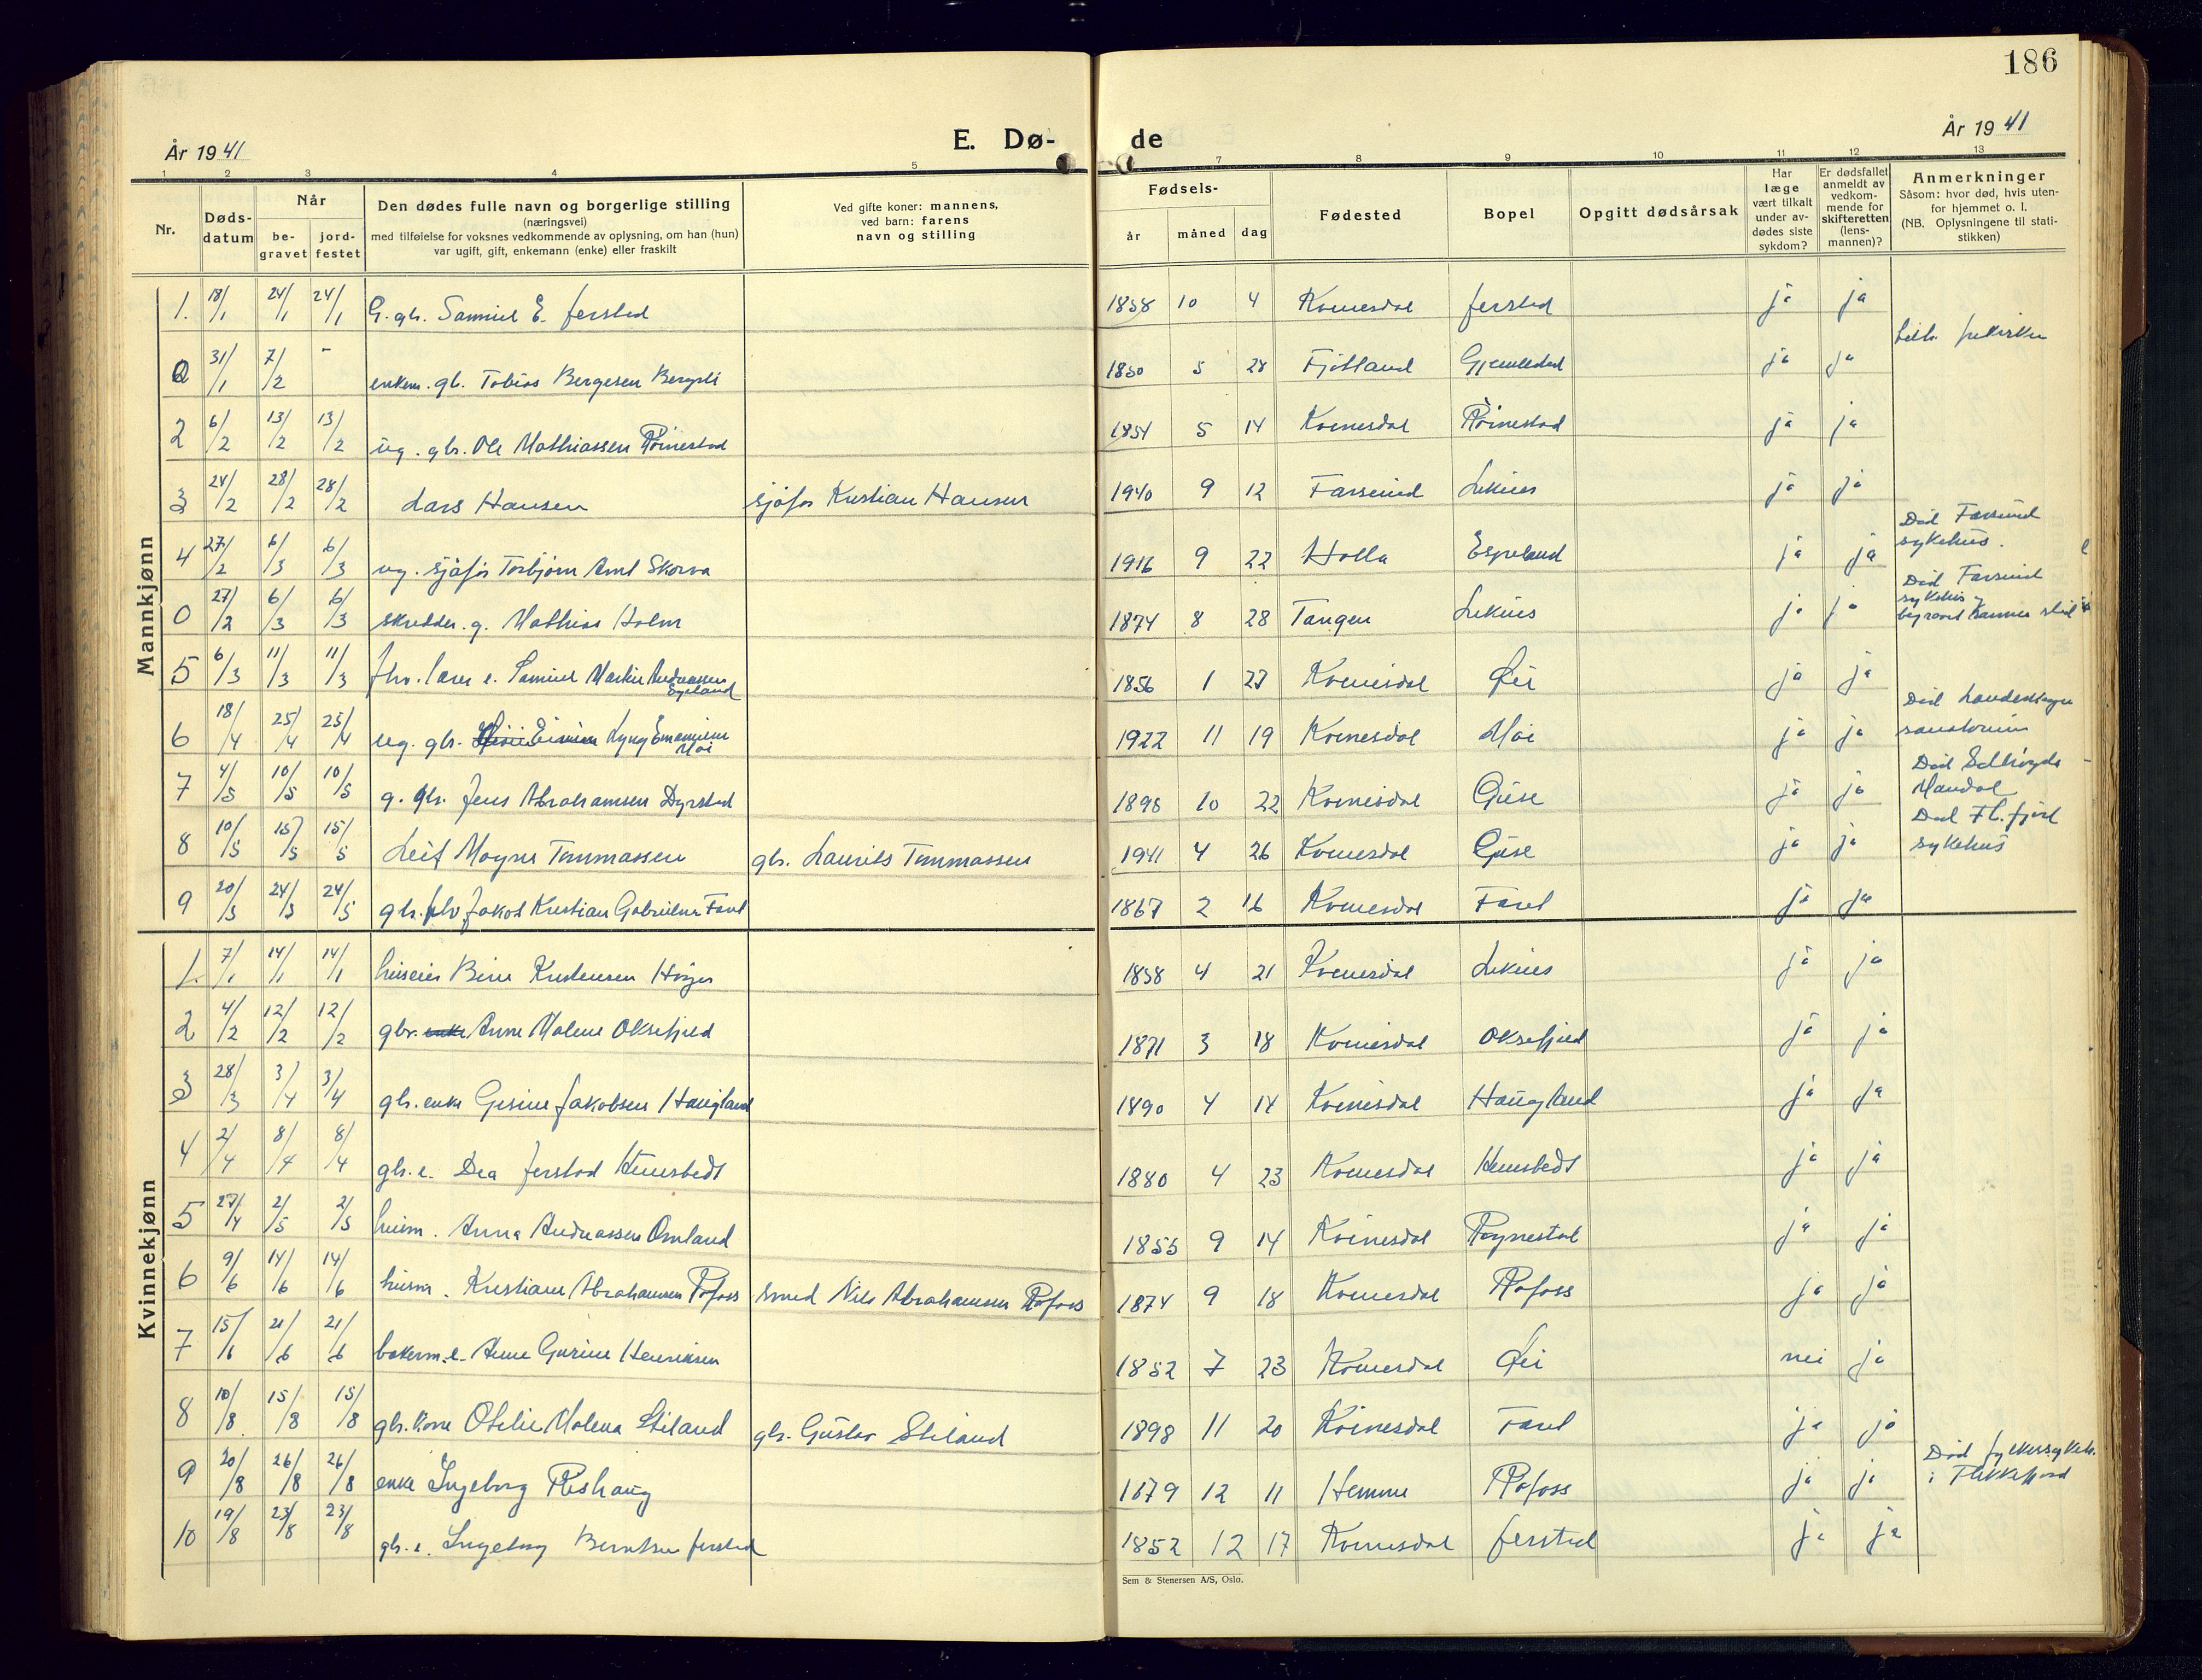 186
År 1941
E. Dø-
de
År 1941
1 2 3 4 5 7 8 9 10 11 12 13
Nr.
Døds-
datum
Når
be-
gravet
jord-
festet
Den dødes fulle navn og borgerlige stilling
(næringsvei)
med tilføielse for voksnes vedkommende av oplysning, om han (hun)
var ugift, gift, enkemann (enke) eller fraskilt
Ved gifte koner: mannens,
ved barn: farens
navn og stilling
Fødsels-
år måned dag
Fødested
Bopel
Opgitt dødsårsak
Har
læge
vært tilkalt
under av-
dødes siste
sykdom?
Er dødsfallet
anmeldt av
vedkom-
mende for
skifteretten
(lens-
mannen)?
Anmerkninger
Såsom: hvor død, hvis uten-
for hjemmet o. l.
(NB. Oplysningene til stati-
stikken)
Mannkjønn
1. 18/1 24/1 24/1 G. gbr. Samuel E. Jerstad 1858 10 4 Kvinesdal Jerstad ja ja
0 31/1 7/2 - enkem. gb. Tobias Bergesen Bergsli 1850 5 28 Fjotland Gjemlestad ja ja luth. frikirken
2 6/2 13/2 13/2 ug. gbr. Ole Mathiassen Röinestad 1854 5 14 Kvinesdal Röinestad ja ja
3 24/2 28/2 28/2 Lars Hansen sjåfør Kristian Hansen 1940 9 12 Farsund Liknes ja ja
4 27/2 6/3 6/3 ug. sjåfør Torbjørn Arnt Skorva 1916 9 22 Holla Espeland ja ja Död Farsund
sykehus.
0 27/2 6/3 6/3 skredder. g. Mathias Holm 1874 8 28 Tangen Liknes ja ja Död Farsund
sykehus
5 6/3 11/3 11/3 fhv. lærer e. Samuel Martin Andreassen
Egeland 1856 1 27 Kvinesdal Øie ja ja
6 18/4 25/4 25/4 ug. gbr. Lyng Emanuelsen
Moi 1922 11 19 Kvinesdal Moi ja ja Død Landeskogen
sanatorium
7 4/5 10/5 10/5 g. gbr. Jens Abrahamsen Dyrstad 1898 10 22 Kvinesdal Guse ja ja Död
Mandal
8 10/5 15/5 15/5 Leif Magne Tommassen gbr. Laurits Tommassen 1941 4 26 Kvinesdal Guse ja ja Död Fl.fjord
sykehus
9 20/5 24/5 24/5 gbr. fhv Jakob Kristian Gabrielsen Faret 1867 2 16 Kvinesdal Faret ja ja
Kvinnekjønn
1. 7/1 14/1 14/1 huseier Kristensen 1858 4 21 Kvinesdal Liknes ja ja
2 4/2 12/2 12/2 gbr. enke Anne Malene Oksefjell 1871 3 18 Kvinesdal Oksefjell ja ja
3 28/3 3/4 3/4 gbr. enke Gesine Jakobsen Haugland 1890 4 14 Kvinesdal Haugland ja ja
4 2/4 8/4 8/4 gbr. e. Dea Jerstad Hunsbedt 1880 4 23 Kvinesdal Hunsbedt ja ja
5 27/4 2/5 2/5 husm. Anna Andreassen Omland 1855 9 14 Kvinesdal Røynestad ja ja
6 9/6 14/6 14/6 husm. Kristiane Abrahamsen Rafoss smed Nils Abrahamsen Rafoss 1874 9 18 Kvinesdal Rafoss ja ja
7 15/6 21/6 21/6 bakerm. e. Anne Gurine Henriksen 1852 7 23 Kvinesdal Øie nei ja
8 10/8 15/8 15/8 gbr. kone Otelie Malena Stiland gbr. Gustav Stiland 1898 11 20 Kvinesdal Faret ja ja
9 20/8 26/8 26/8 enke Ingeborg Reshaug 1879 12 11 Hemne Rafoss ja ja Död fylkessykeh.
i Flekkefjord
10 19/8 23/8 23/8 gbr. e. Ingeborg Berntsen Jerstad 1852 12 17 Kvinesdal Jerstad ja ja
Sem & Stenersen A/S, Oslo.